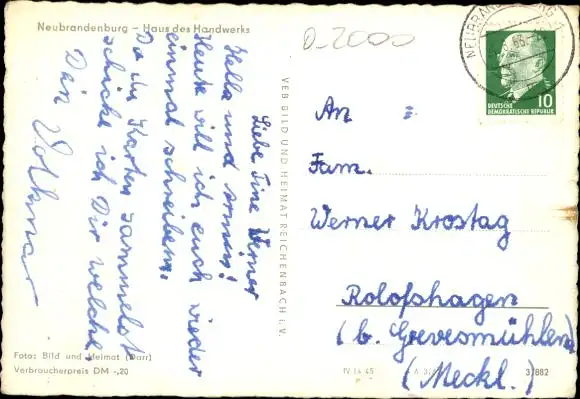 Neubrandenburg – Haus des Handwerks
Liebe Tine Werner
Hella und Armin!
Heute will ich euch wieder
einmal schreiben.
Da du Karten sammelst
schicke ich Dir welche.
Dein Volkmar
Foto: Bild und Heimat (Darr)
Verbraucherpreis DM -,20
VEB BILD UND HEIMAT REICHENBACH i. V.
0-2000
NEUBRANDENBURG
DEUTSCHE
DEMOKRATISCHE REPUBLIK
10
An
Fam.
Werner Krostag
Rolofshagen
(b. Grevesmühlen)
(Meckl.)
IV 14 45